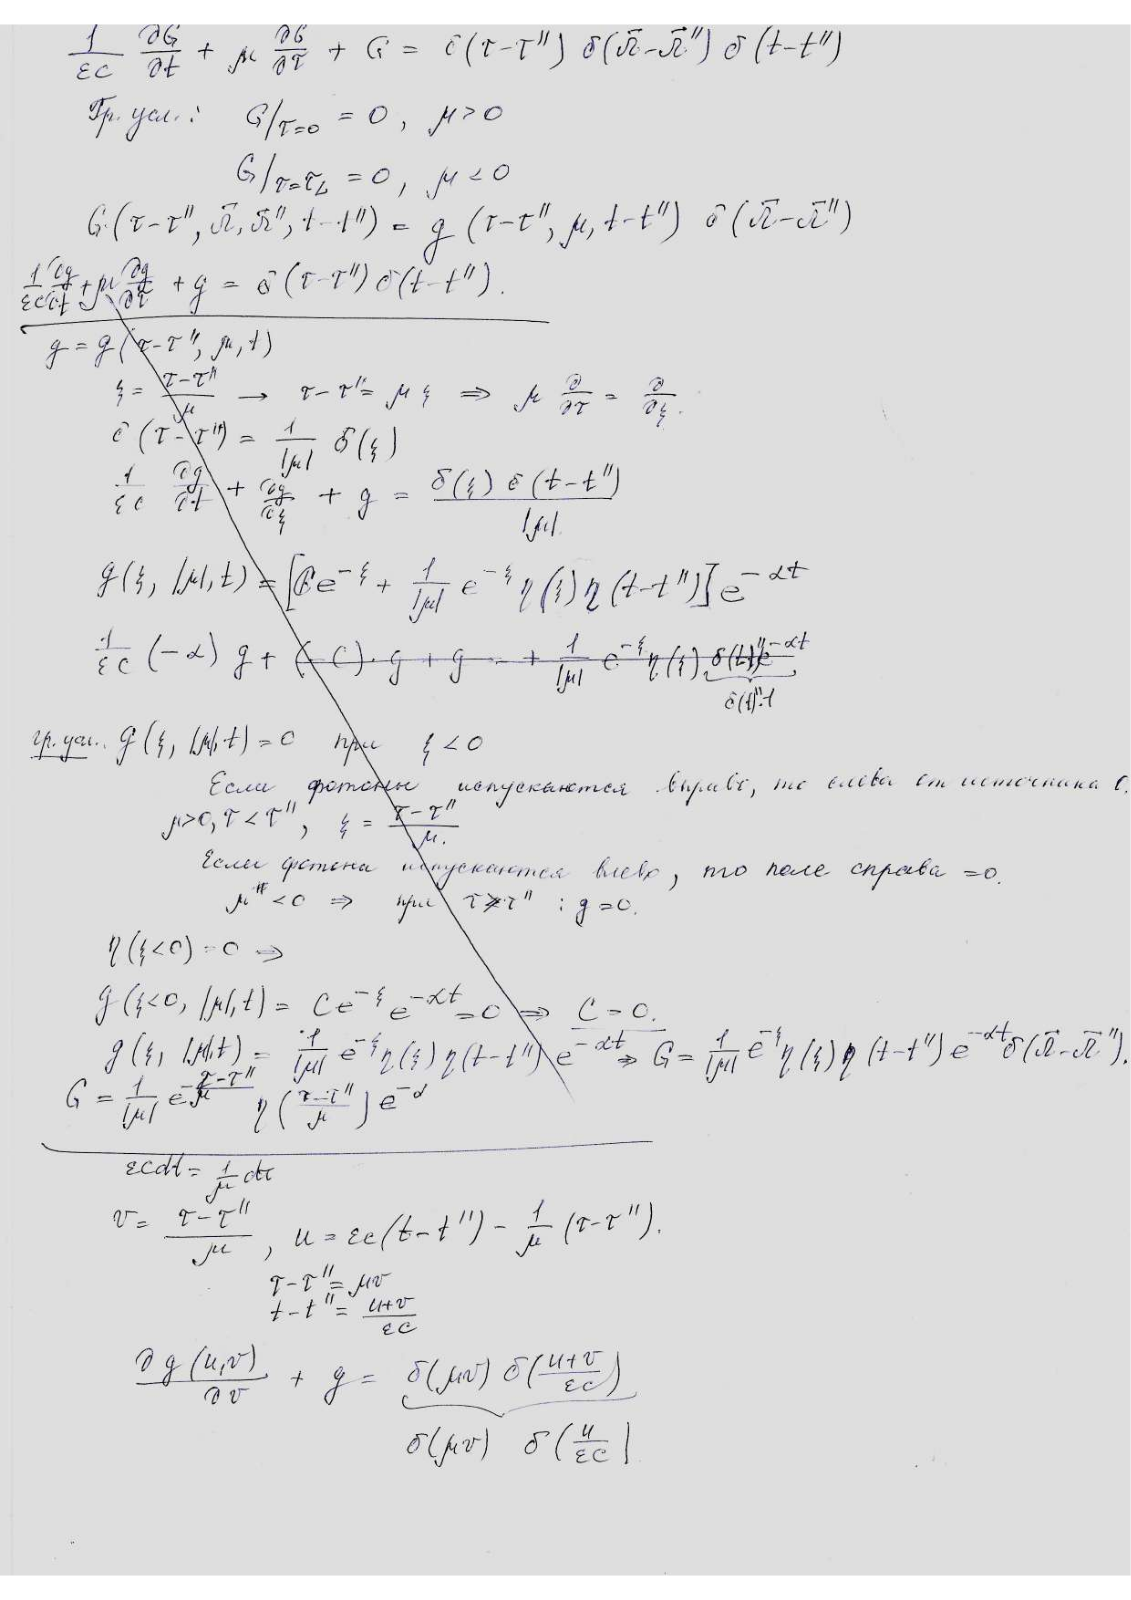 1/εc ∂G/∂t + μ ∂G/∂τ + G = δ(τ-τ'') δ(Ω⃗-Ω⃗'') δ(t-t'')
Гр. усл.: G/τ=0 = 0, μ>0
G/τ=τL = 0, μ<0
G(τ-τ'', Ω⃗, Ω⃗'', t-t'') = g(τ-τ'', μ, t-t'') δ(Ω⃗-Ω⃗'')
1/εc ∂g/∂t + μ ∂g/∂τ + g = δ(τ-τ'') δ(t-t'').
g = g(τ-τ'', μ, t)
ξ = (τ-τ'')/μ → τ-τ'' = μξ ⇒ μ ∂/∂τ = ∂/∂ξ.
δ(τ-τ'') = 1/|μ| δ(ξ)
1/εc ∂g/∂t + ∂g/∂ξ + g = δ(ξ) δ(t-t'')/|μ|.
g(ξ, |μ|, t) = [Ce^{-ξ} + 1/|μ| e^{-ξ} η(ξ) η(t-t'')] e^{-αt}
1/εc (-α) g + (-C)·g + g + 1/|μ| e^{-ξ} η(ξ) δ(t)'' e^{-αt}
δ(t)''·1
гр. усл. g(ξ, |μ|, t) = 0 при ξ<0
Если фотоны испускаются вправо, то слева от источника 0.
μ>0, τ<τ'', ξ = (τ-τ'')/μ.
Если фотоны испускаются влево, то поле справа =0.
μ<0 ⇒ при τ>τ'' : g=0.
η(ξ<0) = 0 ⇒
g(ξ<0, |μ|, t) = Ce^{-ξ} e^{-αt} = 0 ⇒ C = 0.
g(ξ, |μ|, t) = 1/|μ| e^{-ξ} η(ξ) η(t-t'') e^{-αt} ⇒ G = 1/|μ| e^{-ξ} η(ξ) η(t-t'') e^{-αt} δ(Ω⃗-Ω⃗'').
G = 1/|μ| e^{-(τ-τ'')/μ} η((τ-τ'')/μ) e^{-α
εcdt = 1/μ dτ
v = (τ-τ'')/μ, u = εc(t-t'') - 1/μ (τ-τ'').
τ-τ'' = μv
t-t'' = (u+v)/εc
∂g(u,v)/∂v + g = δ(μv) δ((u+v)/εc)
δ(μv) δ(u/εc)